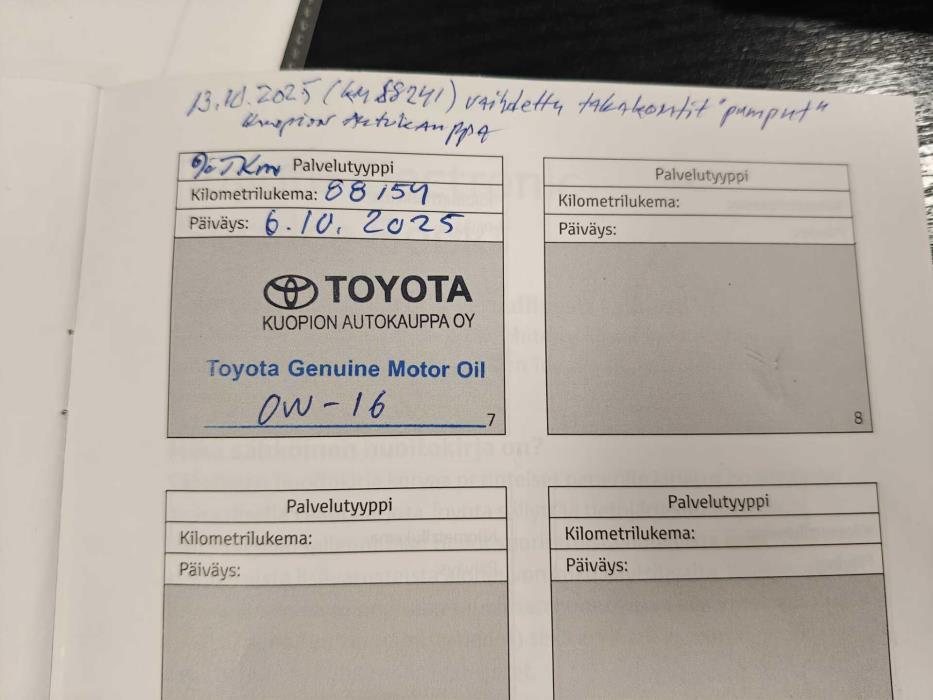 13.10.2025 (km 88241) vaihdettu takakontit "pumput"
Kuopion Autokauppa
Palvelutyyppi
Kilometrilukema: 88154
Päiväys: 6.10.2025
TOYOTA
KUOPION AUTOKAUPPA OY
Toyota Genuine Motor Oil
OW-16
7
Palvelutyyppi
Kilometrilukema:
Päiväys:
8
Palvelutyyppi
Kilometrilukema:
Päiväys:
Palvelutyyppi
Kilometrilukema:
Päiväys: